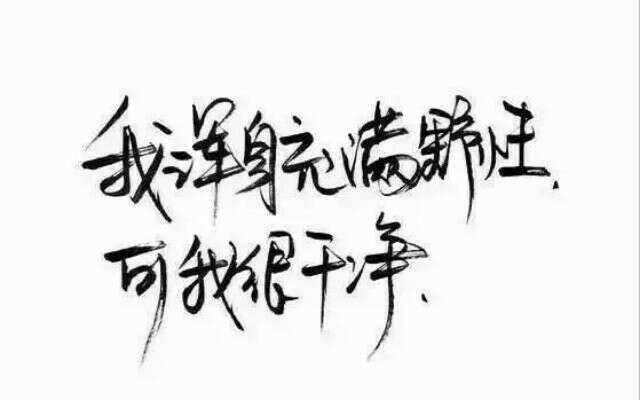 我浑身充满野性.
可我很干净、